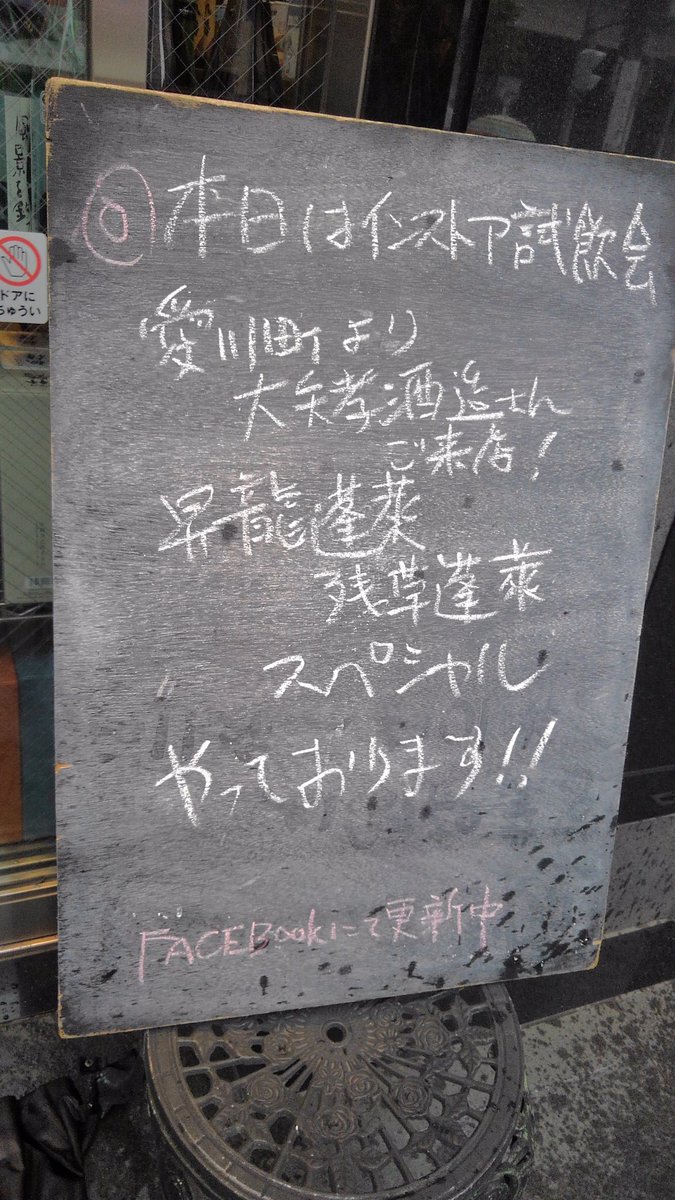 ◎本日はインストア試飲会
愛川町より
大矢孝酒造さん
ご来店!
昇龍蓬莱
残草蓬莱
スペシャル
やっております!!
FACEBookにて更新中
ドアに
ちゅうい